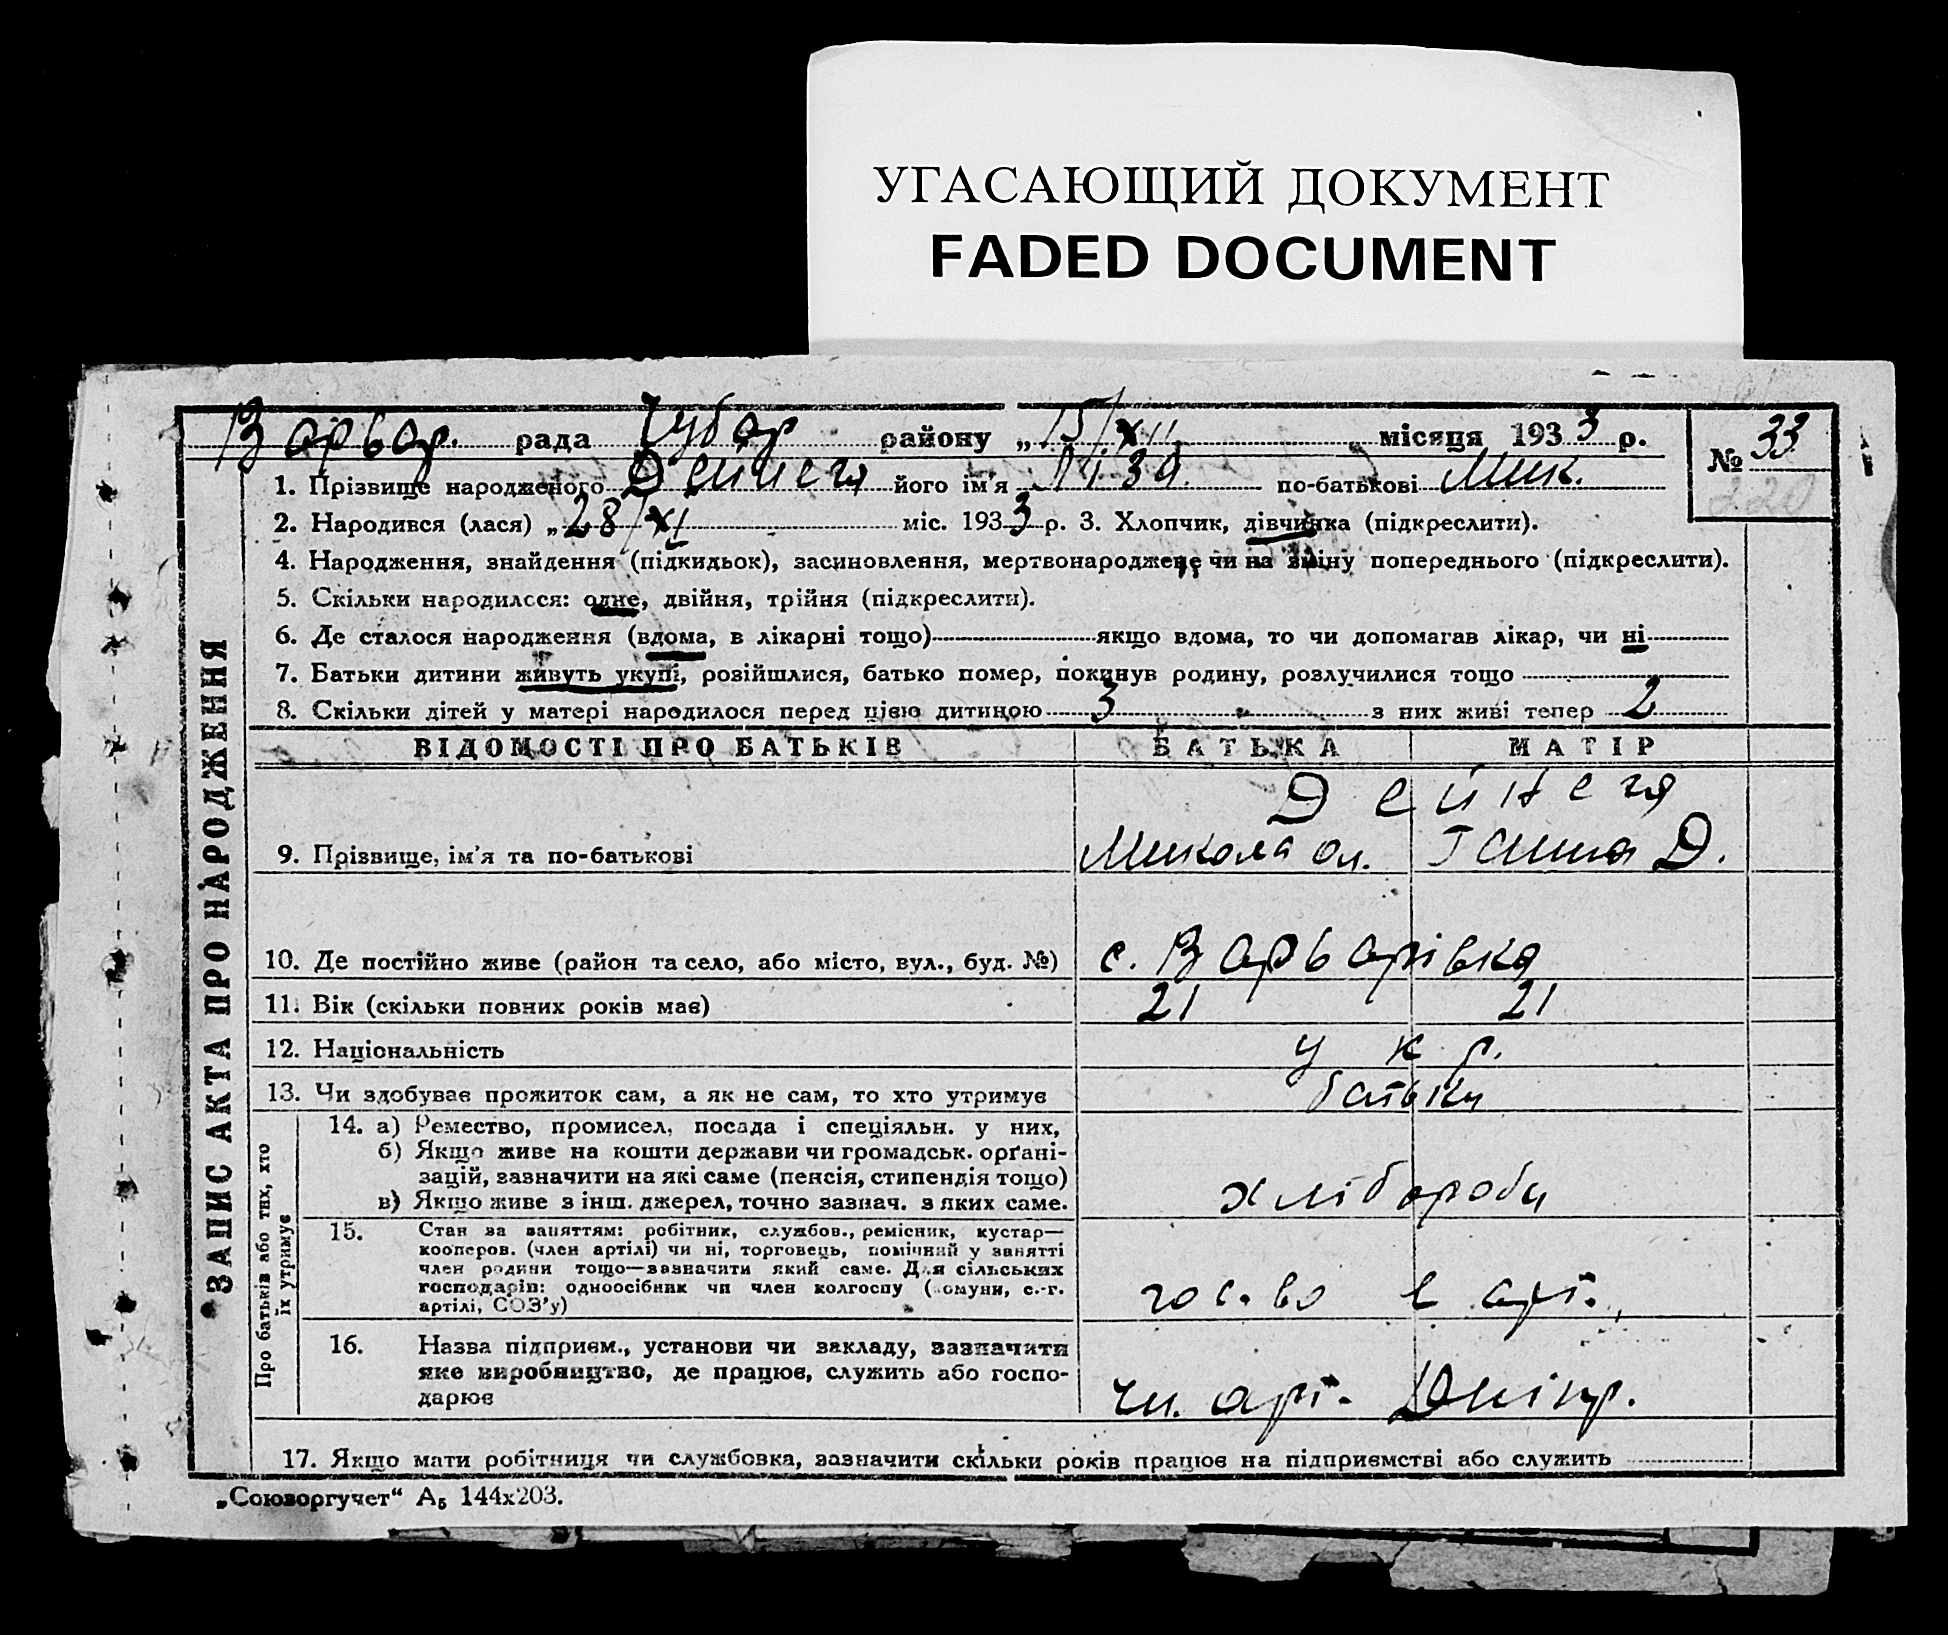 УГАСАЮЩИЙ ДОКУМЕНТ
FADED DOCUMENT
Варвар. рада Чубар району „15/XII „ місяця 1933 р.
№ 33
220
1. Прізвище народженого Дейнега його ім'я Ліза по-батькові Мик.
2. Народився (лася) „28/XI міс. 1933 р. 3. Хлопчик, дівчинка (підкреслити).
4. Народження, знайдення (підкидьок), засиновлення, мертвонароджене чи на зміну попереднього (підкреслити).
5. Скільки народилося: одне, двійня, трійня (підкреслити).
6. Де сталося народження (вдома, в лікарні тощо) якщо вдома, то чи допомагав лікар, чи ні
7. Батьки дитини живуть укупі, розійшлися, батько помер, покинув родину, розлучилися тощо
8. Скільки дітей у матері народилося перед цією дитиною 3 з них живі тепер 2
ЗАПИС АКТА ПРО НАРОДЖЕННЯ
ВІДОМОСТІ ПРО БАТЬКІВ БАТЬКА МАТІР
Дейнега
9. Прізвище, ім'я та по-батькові Микола Ол. Ганна Д.
10. Де постійно живе (район та село, або місто, вул., буд. №) с. Варварівка
11. Вік (скільки повних років має) 21 21
12. Національність укр.
13. Чи здобуває прожиток сам, а як не сам, то хто утримує батьки
Про батьків або тих, хто
їх утримує
14. а) Ремество, промисел, посада і спеціяльн. у них,
б) Якщо живе на кошти держави чи громадськ. орґані-
зацій, зазначити на які саме (пенсія, стипендія тощо)
в) Якщо живе з інш. джерел, точно зазнач. з яких саме.
хлібороби
15. Стан за заняттям: робітник, службов., ремісник, кустар—
кооперов. (член артілі) чи ні, торговець, помічний у занятті
член родини тощо—зазначити який саме. Для сільських
господарів: одноосібник чи член колгоспу (комуни, с.-г.
артілі, СОЗ'у)
гос-во в арт.
16. Назва підприєм., установи чи закладу, зазначити
яке виробництво, де працює, служить або госпо-
дарює
чл. арт. Дніпр.
17. Якщо мати робітниця чи службовка, зазначити скільки років працює на підприємстві або служить
„Союзоргучет“ А₅ 144х203.